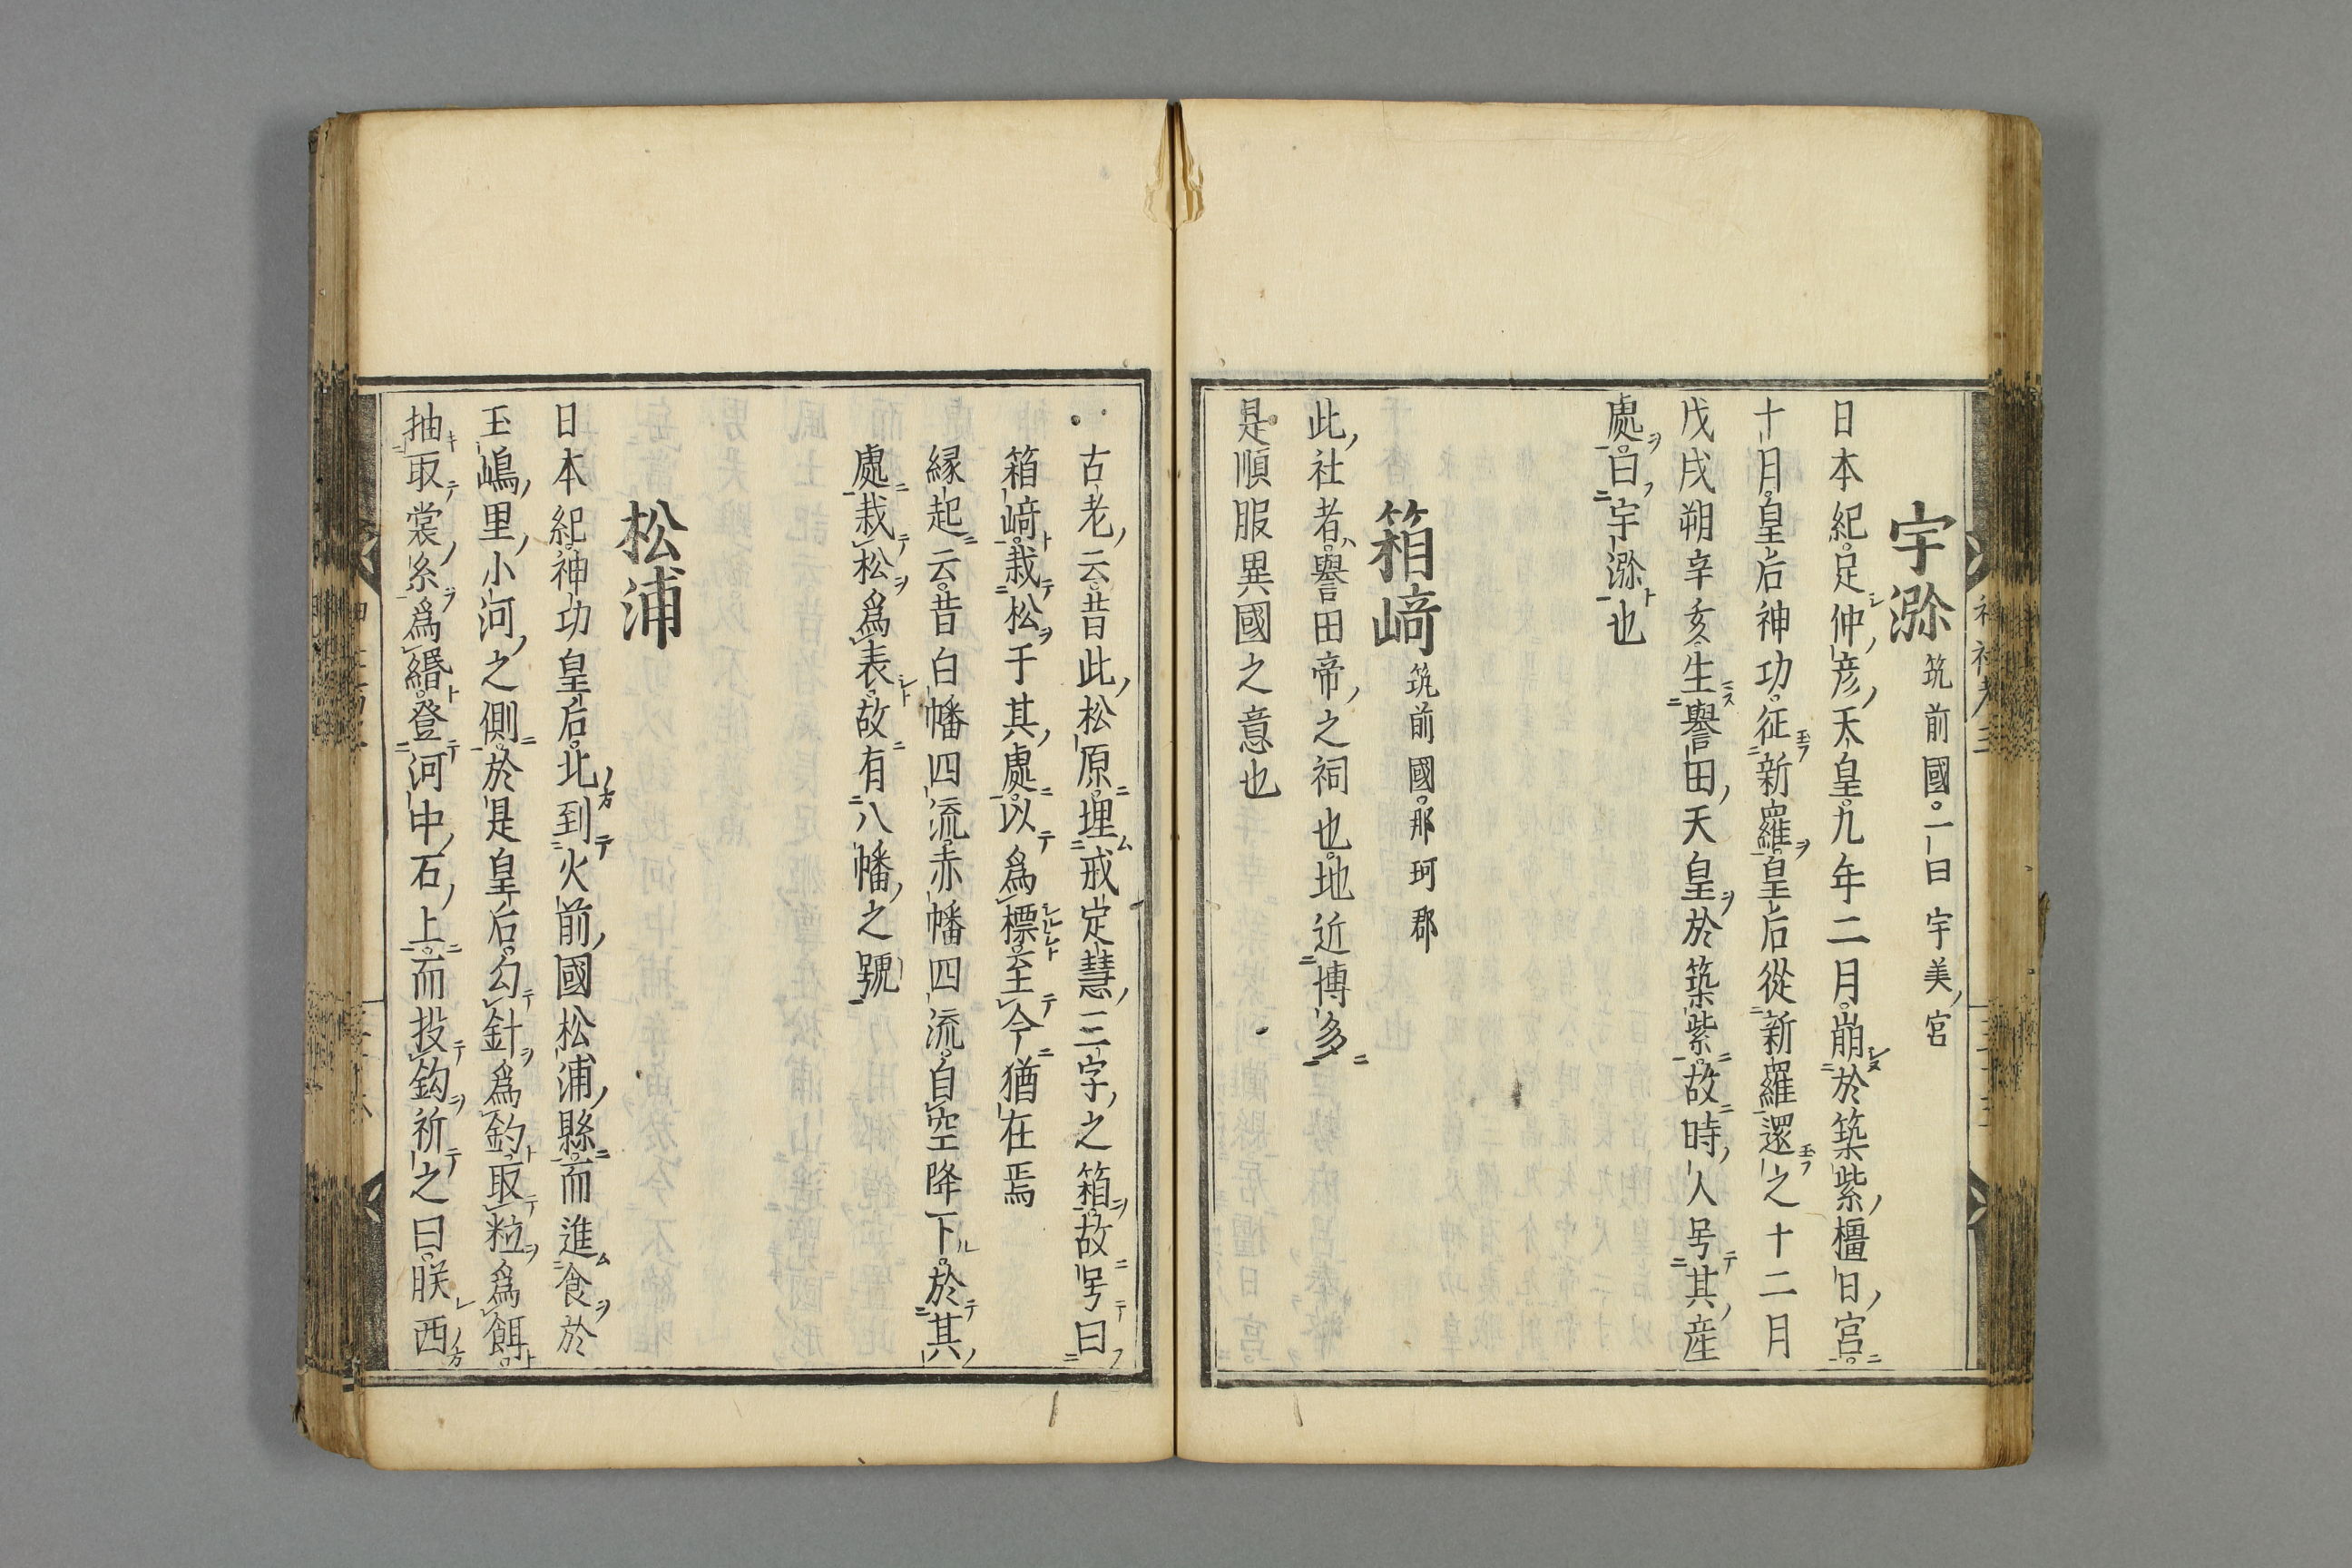 宇瀰 筑前國。一曰宇美ノ宮
日本紀。足仲彦ノ天皇。九年二月。崩於築紫ノ橿日ノ宮。
十月。皇后神功。征新羅。皇后從新羅還之十二月
戊戌朔辛亥。生譽田ノ天皇ヲ於築紫。故時ノ人号其ノ産
處。曰宇瀰ト也
箱﨑 筑前國。那珂郡
此ノ社者。譽田帝ノ之祠也。地近博多
是順服異國之意也
古老ノ云。昔此ノ松原。埋戒定慧ノ三字ノ之箱。故号曰
箱﨑。栽松于其ノ處。以爲標。至今猶在焉
縁起云。昔白幡四流。赤幡四流。自空降下。於其ノ
處栽松爲表。故有八幡ノ之號
松浦
日本紀。神功皇后。北到火前ノ國松浦ノ縣。而進食於
玉嶋ノ里ノ小河ノ之側。於是皇后。勾針爲釣。取粒爲餌。
抽取裳ノ糸爲緡。登河中ノ石ノ上。而投鈎祈之曰。朕西